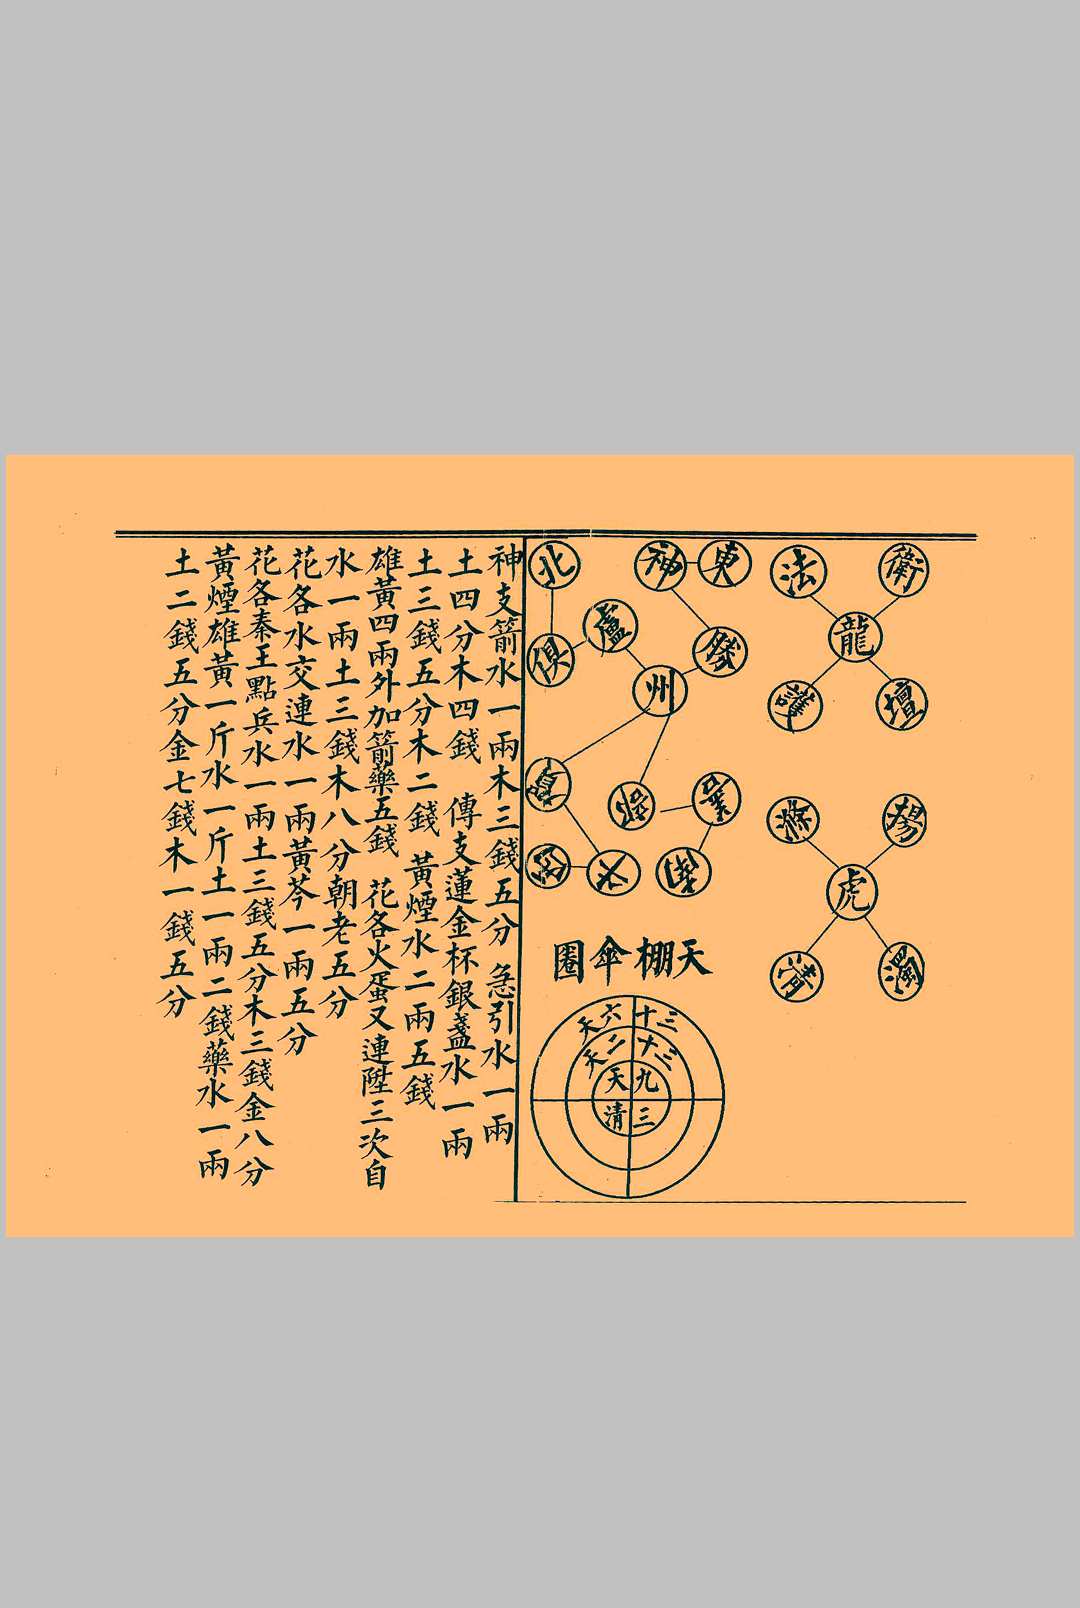 衛
法
龍
壇
護
楊
滌
虎
濁
清
東
神
勝
州
廬
俱
北
天棚傘圈
十三
六天
十三
二天
九
天
三
清
神支箭水一兩木三錢五分 急引水一兩
土四分木四錢 傳支蓮金杯銀盞水一兩
土三錢五分木二錢 黃煙水二兩五錢
雄黃四兩外加箭藥五錢 花各火蛋又連陞三次自
水一兩土三錢木八分朝老五分
花各水交連水一兩黃芩一兩五分
花各秦王點兵水一兩土三錢五分木三錢金八分
黃煙雄黃一斤水一斤土一兩二錢藥水一兩
土二錢五分金七錢木一錢五分